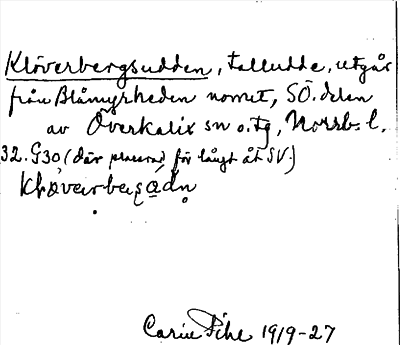 Klöverbergsudden, talludde, utgår
från Blåmyrheden nomut, SÖ. delen
av Överkalix sn o. tg, Norrb. l.
32. G30 (där placerad för långt åt SV.)
Carin Pihl 1919-27